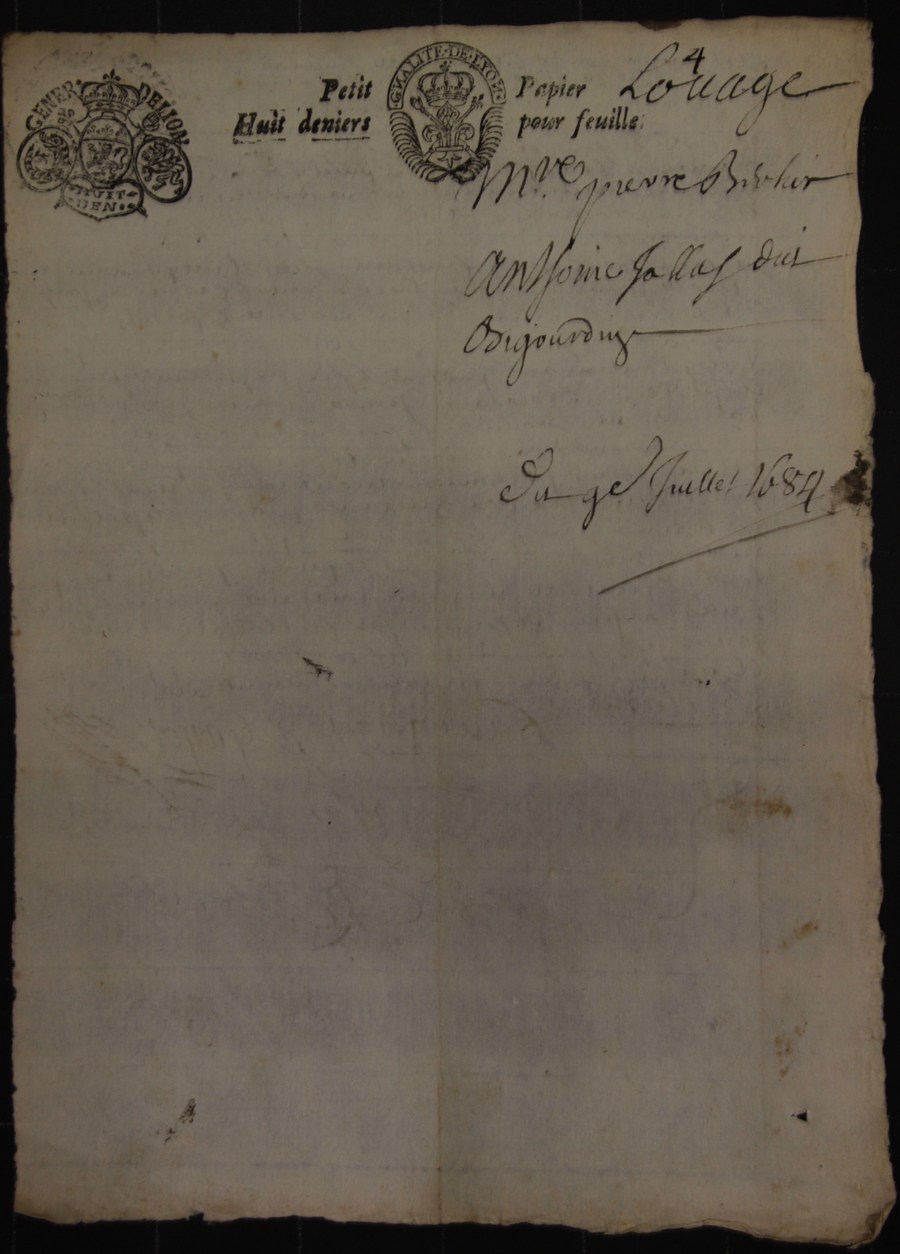 GENER. DE LION
HUIT
DEN.
Petit
Huit deniers
G'RALITE·DE·LYON
Papier
pour feuille.
4
Louage
Mre pierre
Anthoine Jallas dit
Bigourdin
Du 9e Juillet 1684